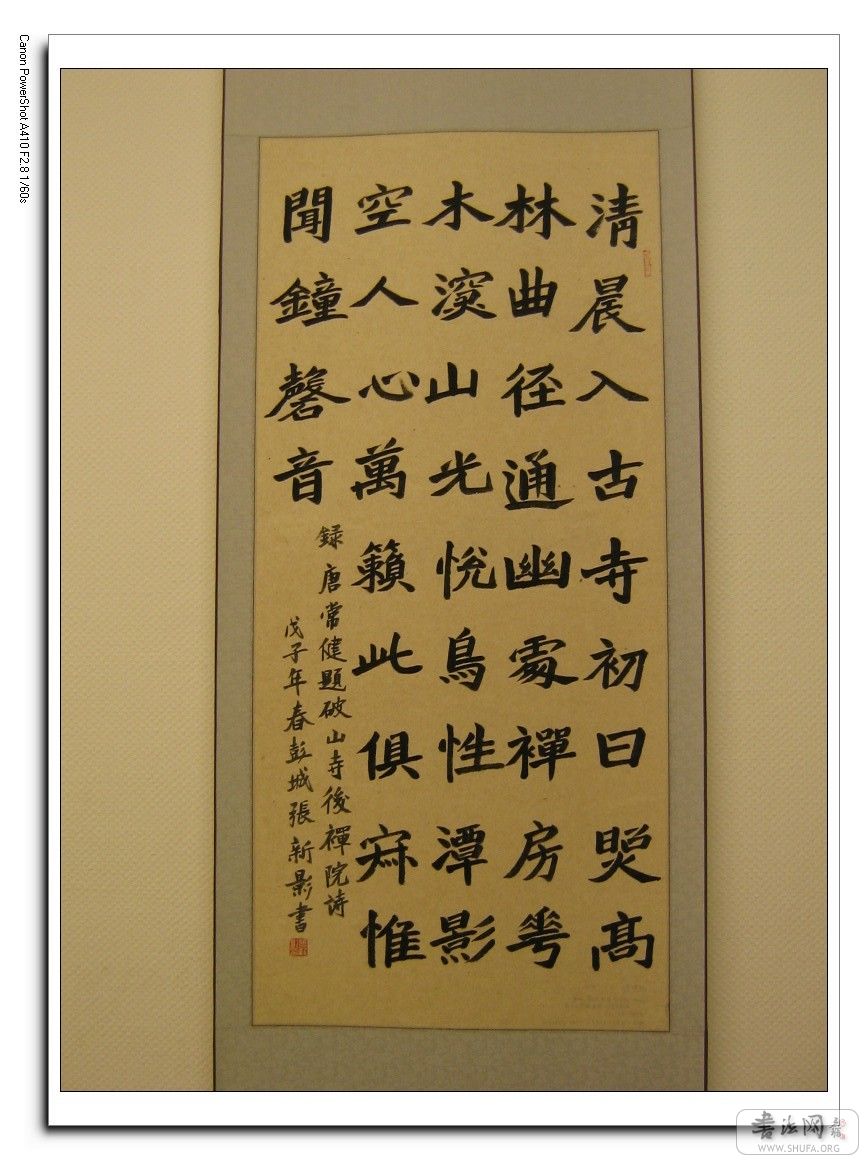 Canon PowerShot A410 F2.8 1/60s
清晨入古寺初日照高
林曲径通幽處禪房花
木深山光悦鳥性潭影
空人心萬籟此俱寂惟
聞鐘磬音
録唐常健題破山寺後禪院詩
戊子年春彭城張新影書
書法网
WWW.SHUFA.ORG